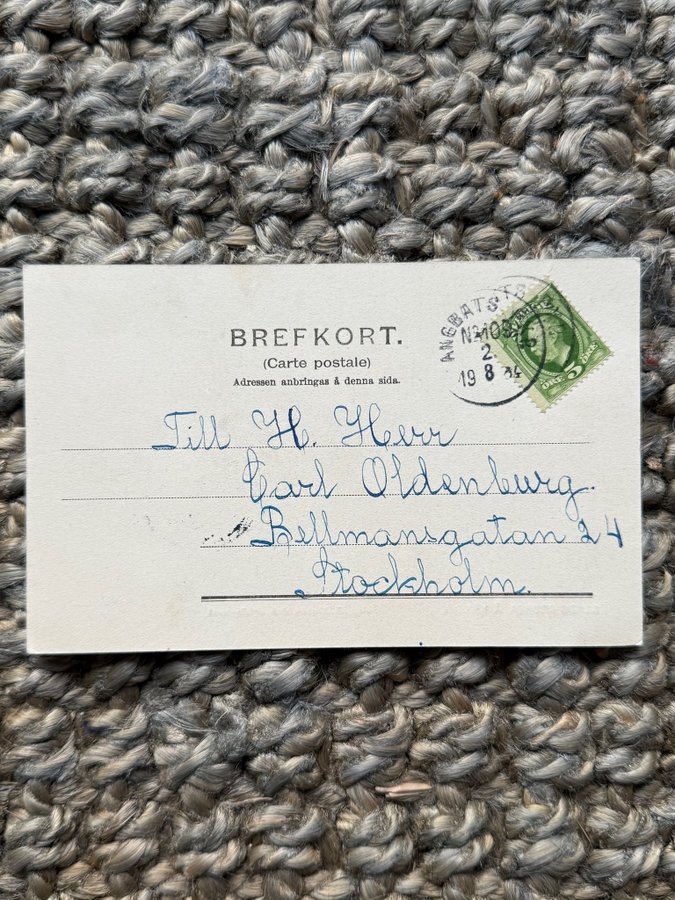 BREFKORT.
(Carte postale)
Adressen anbringas å denna sida.
ÅNGBÅTS
No 10
2
19 8 04
5 ÖRE
Till H. Herr
Carl Oldenburg.
Bellmansgatan 24
Stockholm.